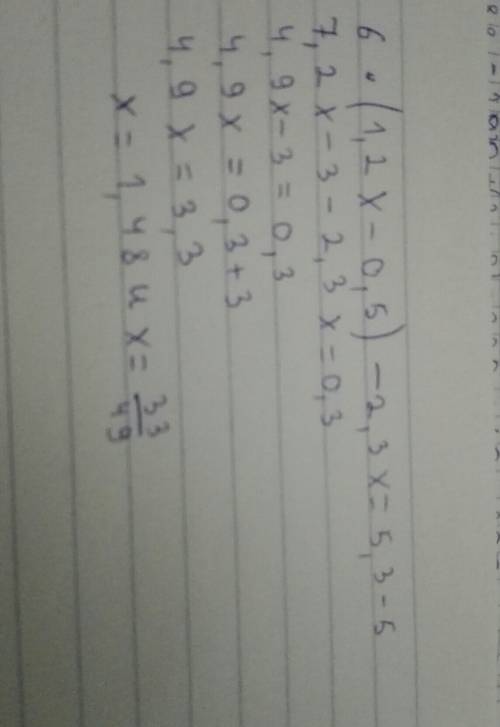 6 · (1,2x - 0,5) - 2,3x = 5,3 - 5
7,2x - 3 - 2,3x = 0,3
4,9x - 3 = 0,3
4,9x = 0,3 + 3
4,9x = 3,3
x = 1,484 x = 33/49